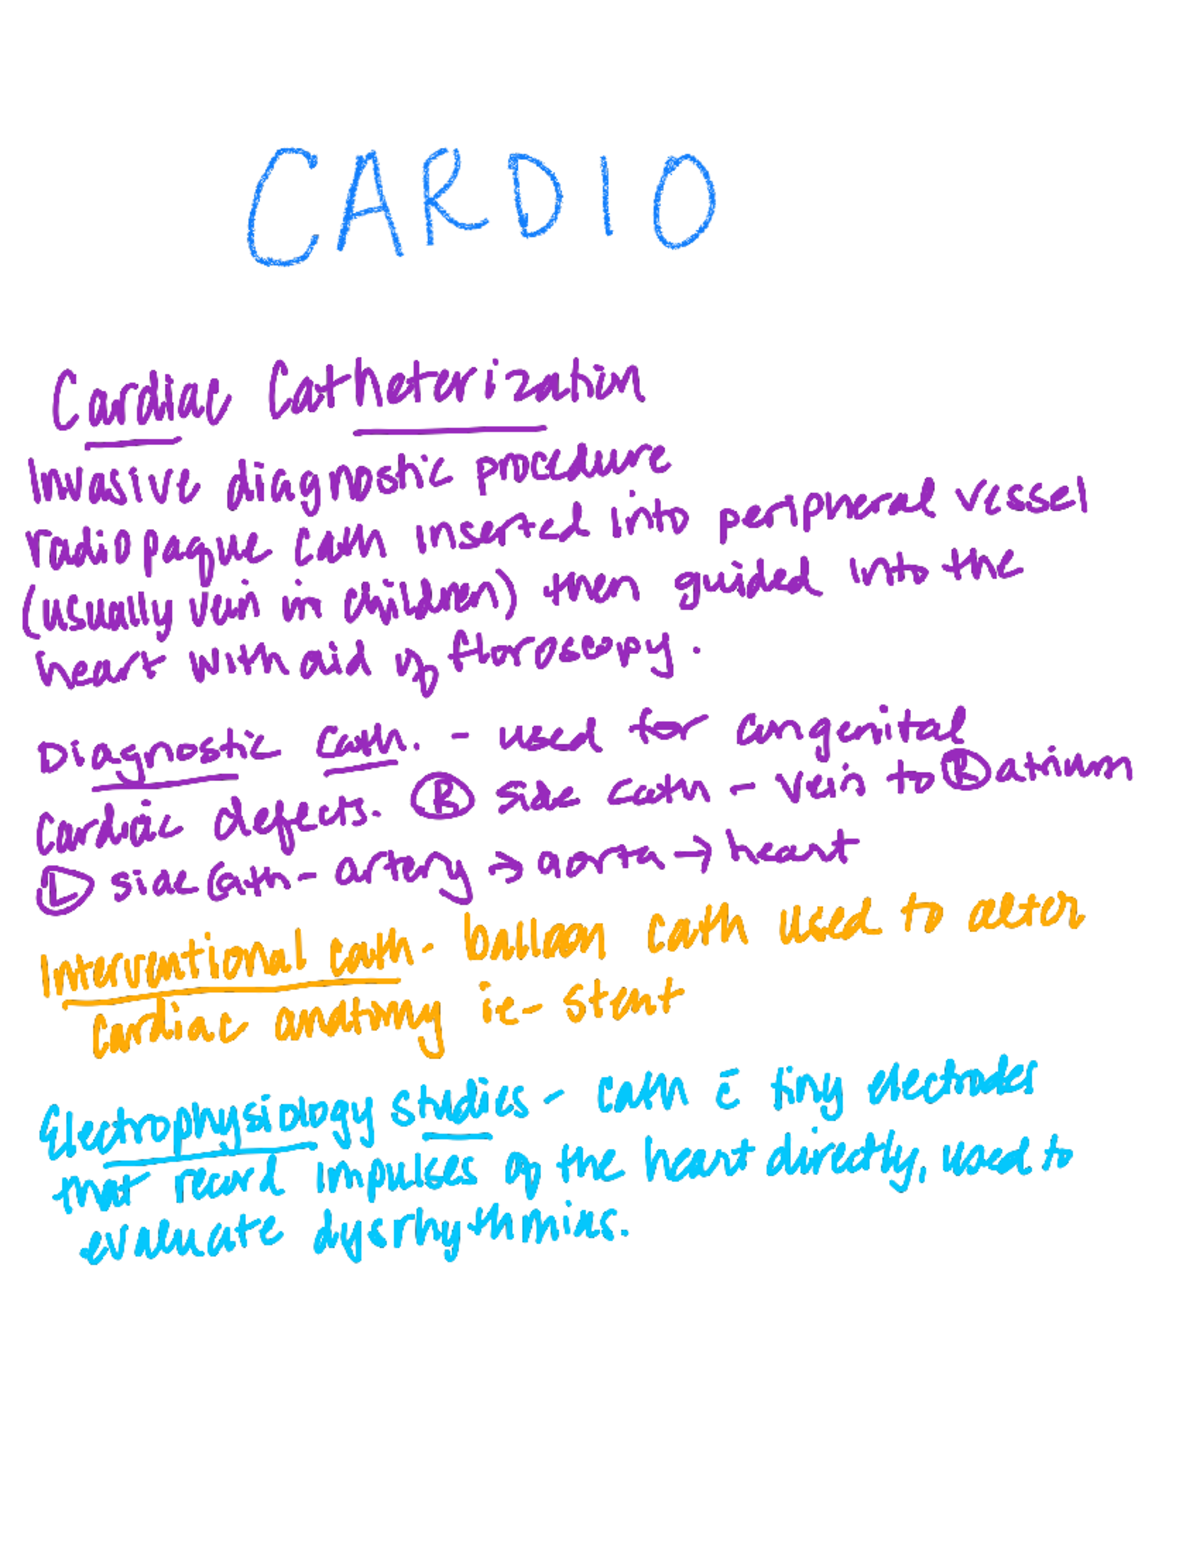 CARDIO
Cardiac Catheterization
Invasive diagnostic procedure
radiopaque cath inserted into peripheral vessel
(usually vein in children) then guided into the
heart with aid of floroscopy.
Diagnostic cath. - used for congenital
cardiac defects. Ⓡ side cath - vein to Ⓡ atrium
Ⓛ side cath - artery → aorta → heart
Interventional cath - balloon cath used to alter
cardiac anatomy ie - stent
Electrophysiology studies - cath c̄ tiny electrodes
that record impulses of the heart directly, used to
evaluate dysrhythmias.